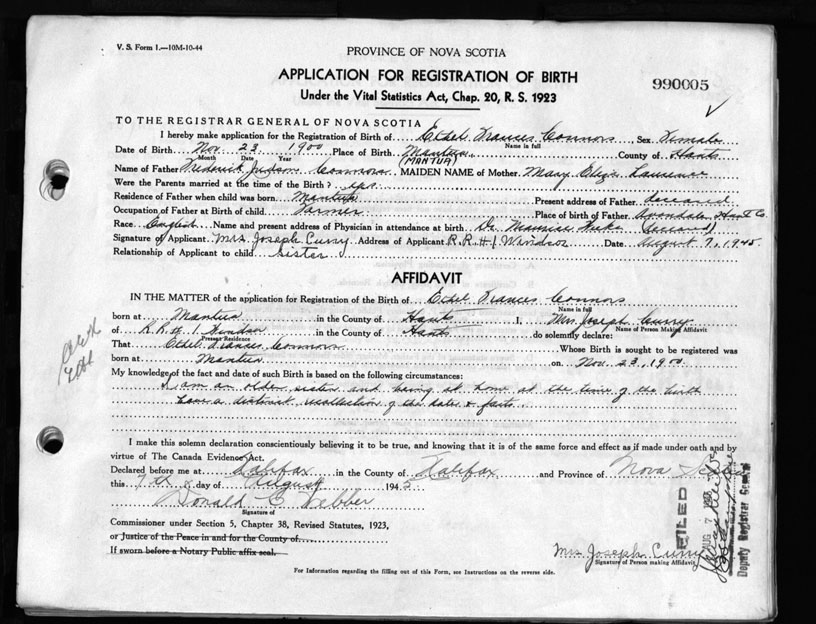 V. S. Form 1.—10M-10-44
PROVINCE OF NOVA SCOTIA
APPLICATION FOR REGISTRATION OF BIRTH
990005
Under the Vital Statistics Act, Chap. 20, R. S. 1923
TO THE REGISTRAR GENERAL OF NOVA SCOTIA
I hereby make application for the Registration of Birth of Ethel Frances Connors, Sex Female
Name in full
Date of Birth Nov. 23 1900 Place of Birth Mantua, County of Hants
Month Date Year (MANTUA)
Name of Father Frederick Judson Connors MAIDEN NAME of Mother Mary Eliza Laurence
Were the Parents married at the time of the Birth? yes
Residence of Father when child was born Mantua Present address of Father deceased
Occupation of Father at Birth of child Farmer Place of birth of Father Avondale Hants Co.
Race English Name and present address of Physician in attendance at birth Dr. Maurice (deceased)
Signature of Applicant Mrs Joseph Curry Address of Applicant R.R #1 Windsor Date August 7, 1945.
Relationship of Applicant to child Sister
AFFIDAVIT
IN THE MATTER of the application for Registration of the Birth of Ethel Frances Connors
Name in full
born at Mantua in the County of Hants I, Mrs. Joseph Curry
Name of Person Making Affidavit
of R.R # 1 Windsor in the County of Hants do solemnly declare:
Present Residence
That Ethel Frances Connors Whose Birth is sought to be registered was
born at Mantua on Nov. 23, 1900.
My knowledge of the fact and date of such Birth is based on the following circumstances:
I am an older sister and being at home at the time of the birth
have a distinct recollection of the dates & facts.
I make this solemn declaration conscientiously believing it to be true, and knowing that it is of the same force and effect as if made under oath and by
virtue of The Canada Evidence Act.
Declared before me at Halifax in the County of Halifax and Province of Nova Scotia
this 7th day of August 1945
Donald C Webber
Signature of
Commissioner under Section 5, Chapter 38, Revised Statutes, 1923,
or Justice of the Peace in and for the County of
If sworn before a Notary Public affix seal.
Mrs Joseph Curry
Signature of Person making Affidavit
For Information regarding the filling out of this Form, see Instructions on the reverse side.
FILED
AUG 7
Deputy Registrar General